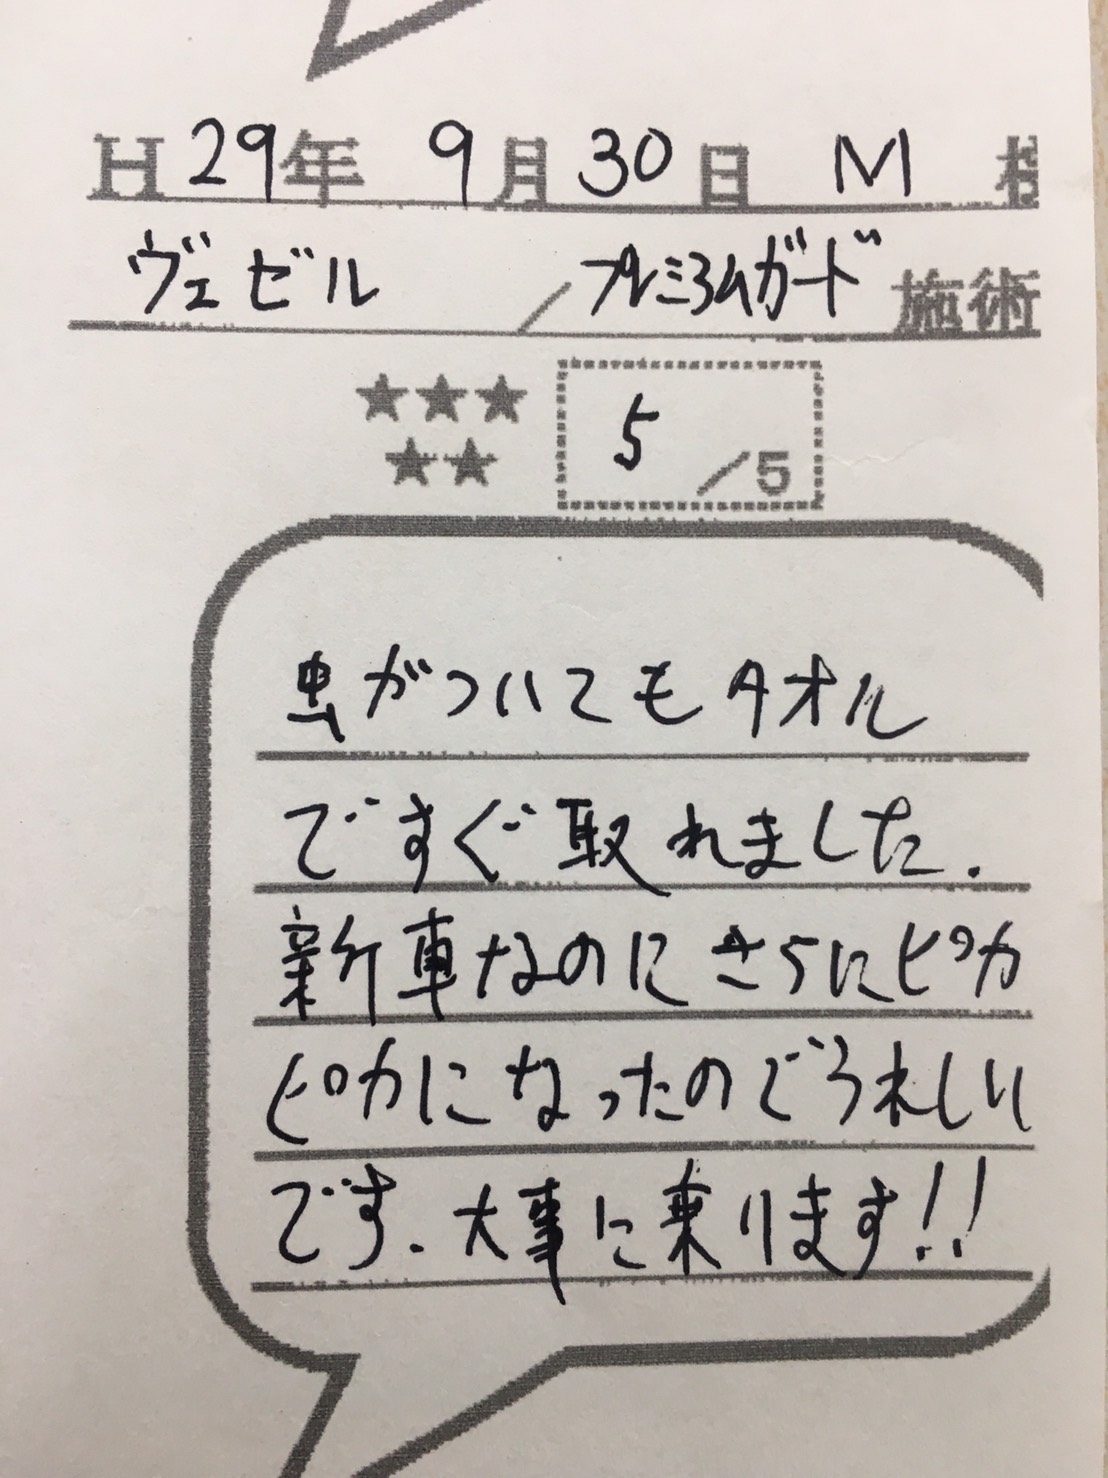 H29年 9月30日 M 様
ヴェゼル / プレミアムガード 施術
★★★
★★
5 /5
虫がついてもタオル
ですぐ取れました.
新車なのにさらにピカ
ピカになったのでうれしい
です.大事に乗ります!!